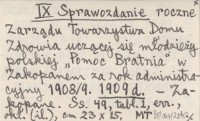 IX Sprawozdanie roczne
Zarządu Towarzystwa Domu
Zdrowia uczącej się młodzieży
polskiej "Pomoc Bratnia" w
Zakopanem za rok administra-
cyjny 1908/9. 1909 d. - Za-
kopane. Ss. 49, tabl. 1, err.,
okł. (il.), cm 23 x 15. MT